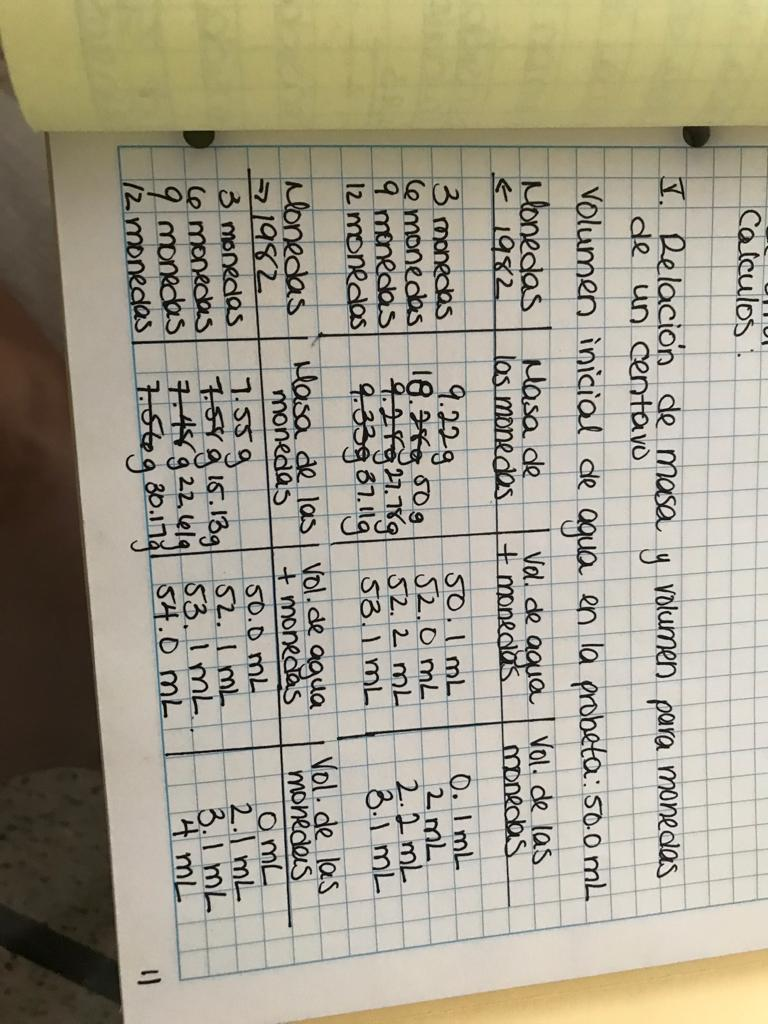 Calculos:
I. Relación de masa y volumen para monedas
de un centavo
Volumen inicial de agua en la probeta: 50.0 mL
Monedas | Masa de | Vol. de agua | Vol. de las
← 1982 | las monedas | + monedas | monedas
3 monedas 9.22g 50.1 mL 0.1 mL
6 monedas 18.28g 50g 52.0 mL 2 mL
9 monedas 9.28g 27.78g 52.2 mL 2.2 mL
12 monedas 9.33g 37.11g 53.1 mL 3.1 mL
Monedas | Masa de las | Vol. de agua | Vol. de las
⇒ 1982 | monedas | + monedas | monedas
3 monedas 7.55 g 50.0 mL 0 mL
6 monedas 7.58 g 15.13g 52.1 mL 2.1 mL
9 monedas 7.48 g 22.61g 53.1 mL 3.1 mL
12 monedas 7.56 g 30.17g 54.0 mL 4 mL
11